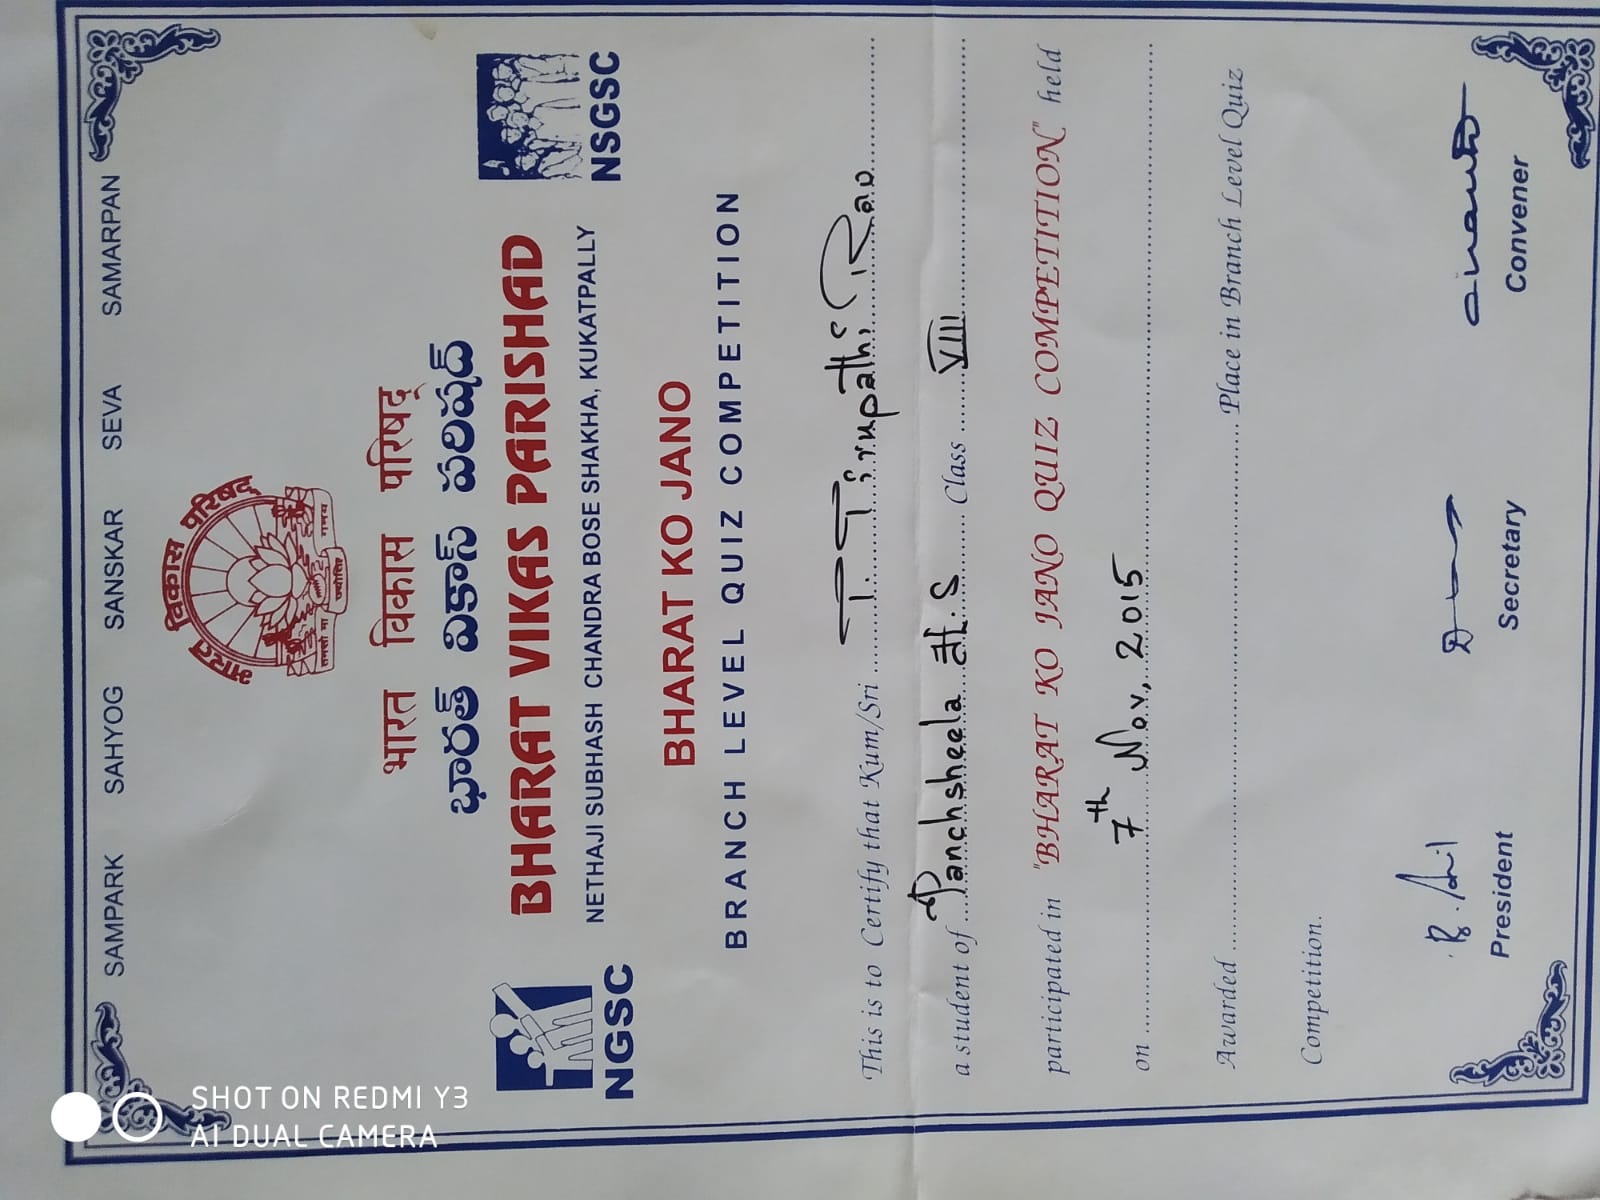 SAMPARK SAHYOG SANSKAR SEVA SAMARPAN
भारत विकास परिषद्
तमसो मा ज्योतिर्गमय
भारत विकास परिषद्
భారత్ వికాస్ పరిషద్
BHARAT VIKAS PARISHAD
NGSC
NSGSC
NETHAJI SUBHASH CHANDRA BOSE SHAKHA, KUKATPALLY
BHARAT KO JANO
BRANCH LEVEL QUIZ COMPETITION
This is to Certify that Kum/Sri T. Tirupathi Rao
a student of Panchsheela H.S Class VIII
participated in "BHARAT KO JANO QUIZ COMPETITION" held
on 7th Nov, 2015
Awarded Place in Branch Level Quiz
Competition.
President Secretary Convener
SHOT ON REDMI Y3
AI DUAL CAMERA